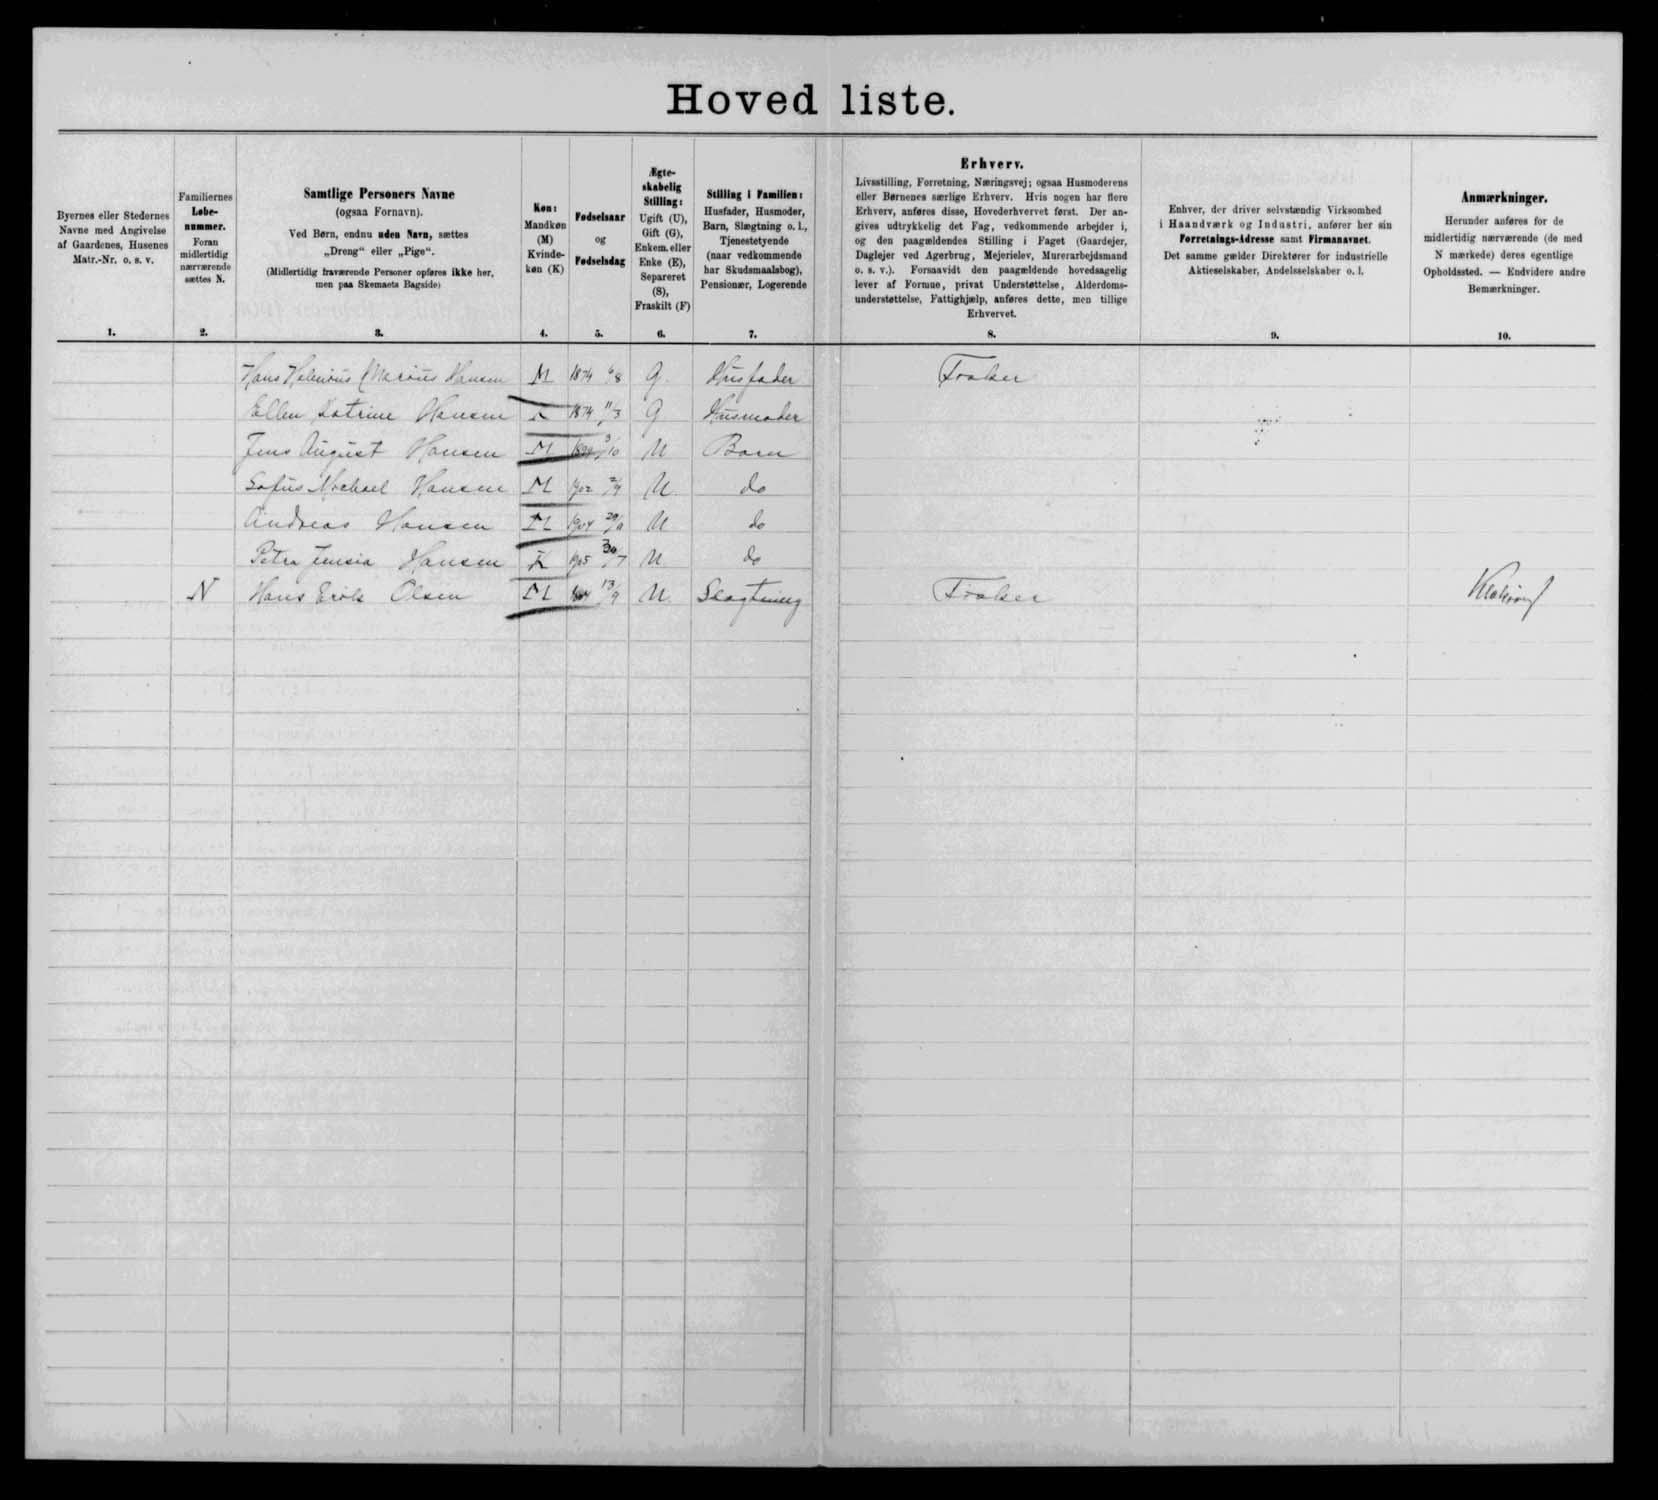 Hovedliste.
Byernes eller Stedernes
Navne med Angivelse
af Gaardenes, Husenes
Matr.-Nr. o. s. v.
1.
Familiernes
Løbe-
nummer.
Foran
midlertidig
nærværende
sættes N.
2.
Samtlige Personers Navne
(ogsaa Fornavn).
Ved Børn, endnu uden Navn, sættes
„Dreng“ eller „Pige“.
(Midlertidig fraværende Personer opføres ikke her,
men paa Skemaets Bagside)
3.
Køn:
Mandkøn
(M)
Kvinde-
køn (K)
4.
Fødselsaar
og
Fødselsdag
5.
Ægte-
skabelig
Stilling:
Ugift (U),
Gift (G),
Enkem. eller
Enke (E),
Separeret
(S),
Fraskilt (F)
6.
Stilling i Familien:
Husfader, Husmoder,
Barn, Slægtning o. l.,
Tjenestetyende
(naar vedkommende
har Skudsmaalsbog),
Pensionær, Logerende
7.
Erhverv.
Livsstilling, Forretning, Næringsvej; ogsaa Husmoderens
eller Børnenes særlige Erhverv. Hvis nogen har flere
Erhverv, anføres disse, Hovederhvervet først. Der an-
gives udtrykkelig det Fag, vedkommende arbejder i,
og den paagældendes Stilling i Faget (Gaardejer,
Daglejer ved Agerbrug, Mejerielev, Murerarbejdsmand
o. s. v.). Forsaavidt den paagældende hovedsagelig
lever af Formue, privat Understøttelse, Alderdoms-
understøttelse, Fattighjælp, anføres dette, men tillige
Erhvervet.
8.
Enhver, der driver selvstændig Virksomhed
i Haandværk og Industri, anfører her sin
Forretnings-Adresse samt Firmanavnet.
Det samme gælder Direktører for industrielle
Aktieselskaber, Andelsselskaber o. l.
9.
Anmærkninger.
Herunder anføres for de
midlertidig nærværende (de med
N mærkede) deres egentlige
Opholdssted. — Endvidere andre
Bemærkninger.
10.
Hans Marius Hansen M 1874 6/8 G. Husfader
Ellen Katrine Hansen K 1874 11/3 G Husmoder
Jens August Hansen M /10 U Barn
Sofus Michael Hansen M 1902 U. do
Andreas Hansen M 1904 U do
Petra Jensia Hansen K 1905 30/7 U do
N Hans Erik Olsen M 13/9 U. Slagtning